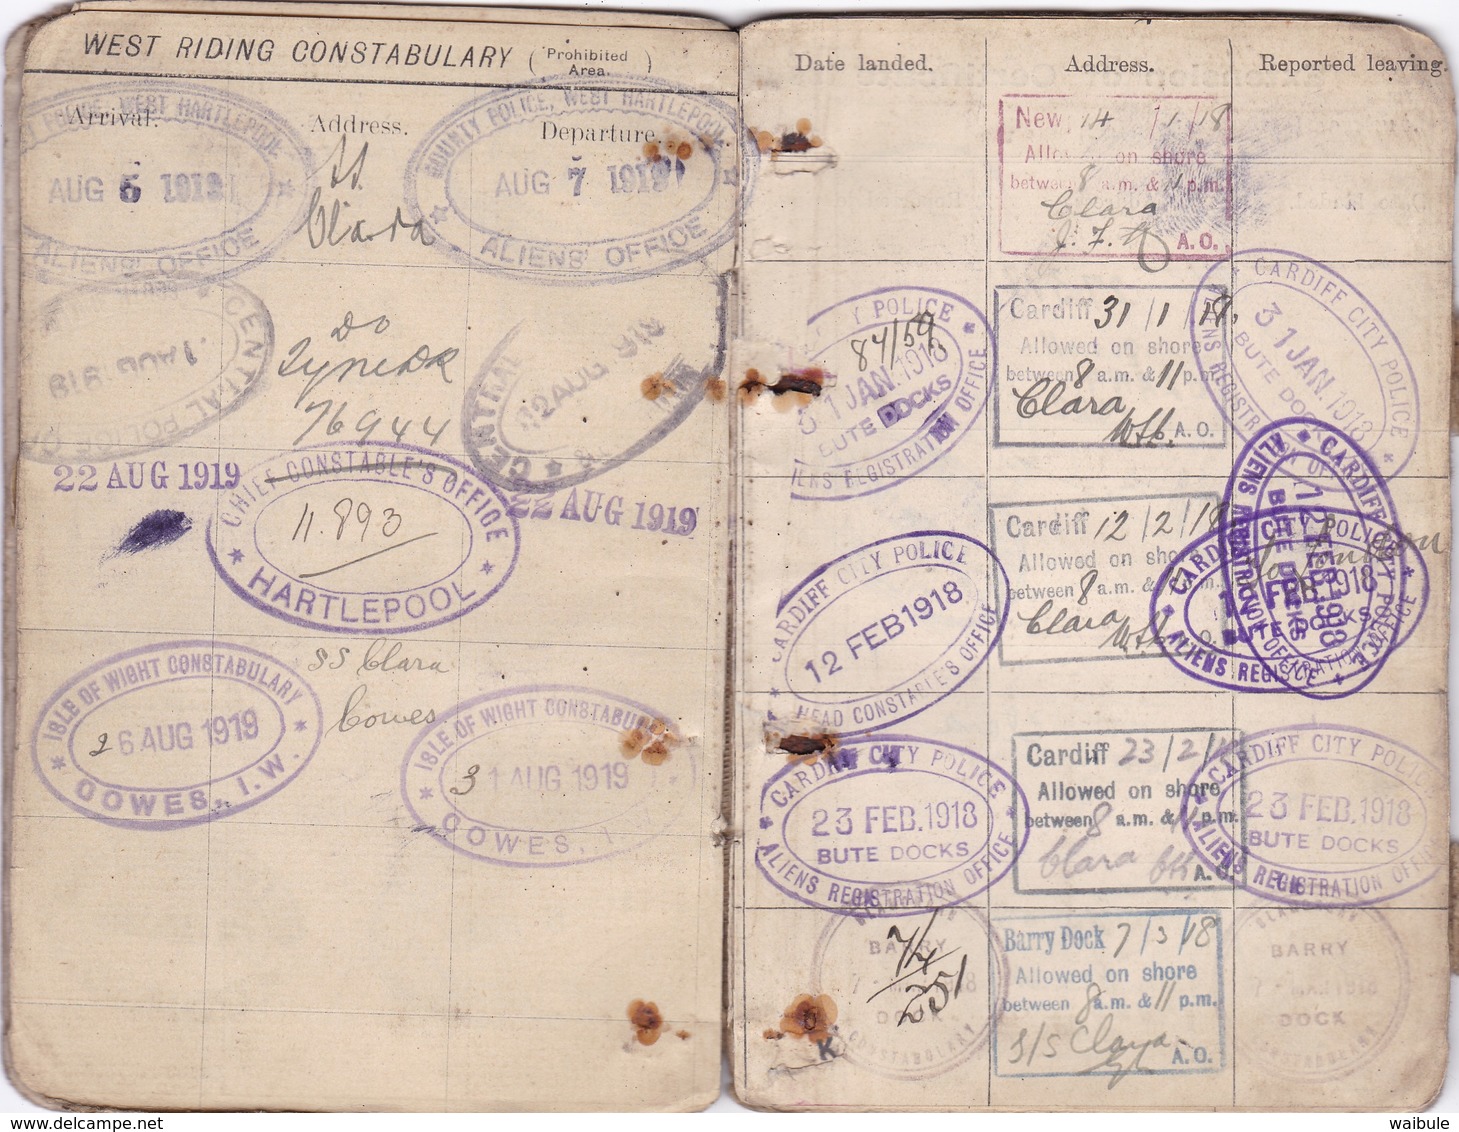 WEST RIDING CONSTABULARY (Prohibited Area.)
Arrival. Address. Departure.
POLICE, WEST HARTLEPOOL
AUG 5 1919
ALIENS' OFFICE
SS. Clara
COUNTY POLICE, WEST HARTLEPOOL
AUG 7 1919
ALIENS' OFFICE
CENTRAL POLICE
AUG 1919
Do
Tyne Dk
76944
CENTRAL
12 AUG 919
22 AUG 1919
CHIEF CONSTABLE'S OFFICE
11.893
HARTLEPOOL
22 AUG 1919
ISLE OF WIGHT CONSTABULARY
26 AUG 1919
COWES, I.W.
SS Clara
Cowes
ISLE OF WIGHT CONSTABULARY
31 AUG 1919
COWES, I.
Date landed. Address. Reported leaving.
New 14/1/18
Allowed on shore
between 8 a.m. & 11 p.m.
Clara
A.O.
CITY POLICE
84/59
31 JAN. 1918
BUTE DOCKS
ALIENS REGISTRATION OFFICE
Cardiff 31/1/18.
Allowed on shore
between 8 a.m. & 11 p.m.
Clara
A.O.
CARDIFF CITY POLICE
31 JAN. 1918
BUTE DOCKS
ALIENS REGISTR
CARDIFF CITY POLICE
12 FEB 1918
HEAD CONSTABLE'S OFFICE
Cardiff 12/2/18
Allowed on shore
between 8 a.m. &
Clara
CARDIFF CITY POLICE
12 FEB 1918
BUTE DOCKS
ALIENS REGISTRATION OFFICE
CARDIFF CITY POLICE
FEB. 1918
BUTE DOCKS
ALIENS REGISTRATION OFFICE
CARDIFF CITY POLICE
23 FEB. 1918
BUTE DOCKS
ALIENS REGISTRATION OFFICE
Cardiff 23/2/
Allowed on shore
between 8 a.m. & 11 p.m.
Clara
A.O.
CARDIFF CITY POLICE
23 FEB. 1918
BUTE DOCKS
ALIENS REGISTRATION OFFICE
GLAMORGAN
BARRY
7 - MAR 1918
DOCK
CONSTABULARY
7/4
251
Barry Dock 7/3/18
Allowed on shore
between 8 a.m. & 11 p.m.
S/S Clara
A.O.
GLAMORGAN
BARRY
7 - MAR 1918
DOCK
CONSTABULARY
K
www.delcampe.net
waibule